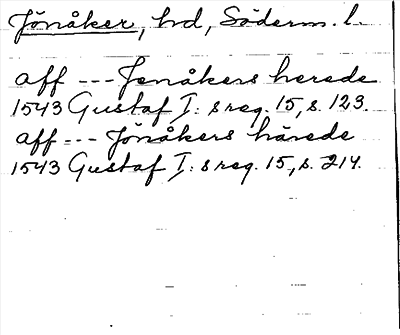 Jönåker, hd, Söderm. l.
aff --- Jenåkers herede
1543 Gustaf I:s reg. 15, s. 123.
aff --- Jönåkers härede
1543 Gustaf I:s reg. 15, s. 214.